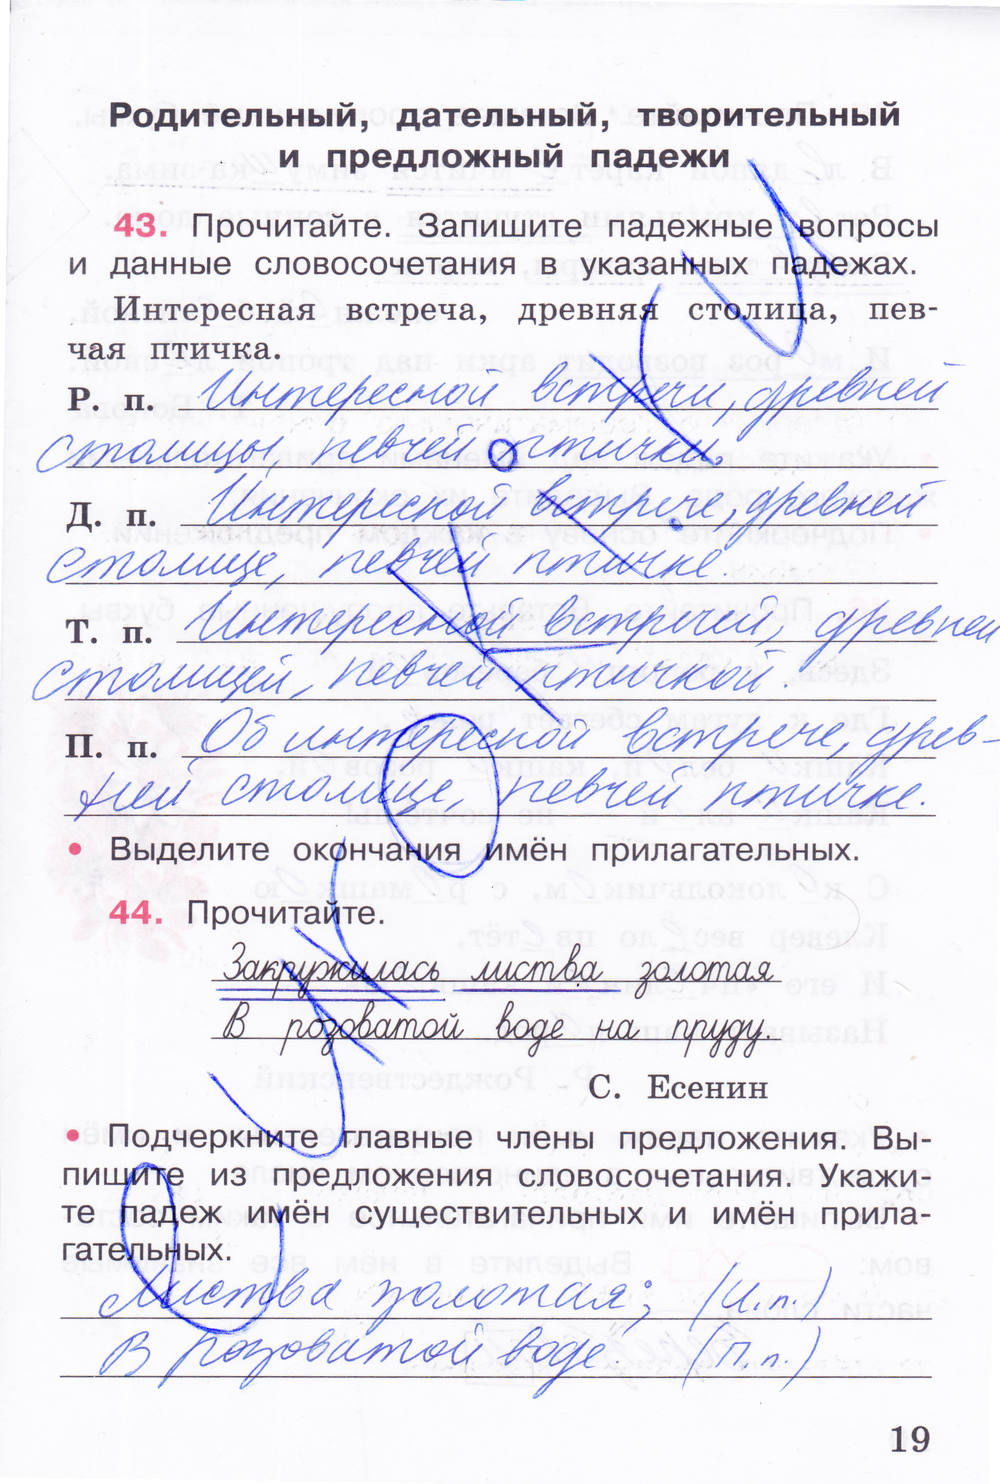 Родительный, дательный, творительный
и предложный падежи
43. Прочитайте. Запишите падежные вопросы
и данные словосочетания в указанных падежах.
Интересная встреча, древняя столица, пев-
чая птичка.
Р. п. Интересной встречи, древней
столицы, певчей птички.
Д. п. Интересной встрече, древней
столице, певчей птичке.
Т. п. Интересной встречей, древней
столицей, певчей птичкой.
П. п. Об интересной встрече, древ-
ней столице, певчей птичке.
• Выделите окончания имён прилагательных.
44. Прочитайте.
Закружилась листва золотая
В розоватой воде на пруду.
С. Есенин
• Подчеркните главные члены предложения. Вы-
пишите из предложения словосочетания. Укажи-
те падеж имён существительных и имён прила-
гательных.
Листва золотая; (И.п.)
В розоватой воде (П.п.)
19